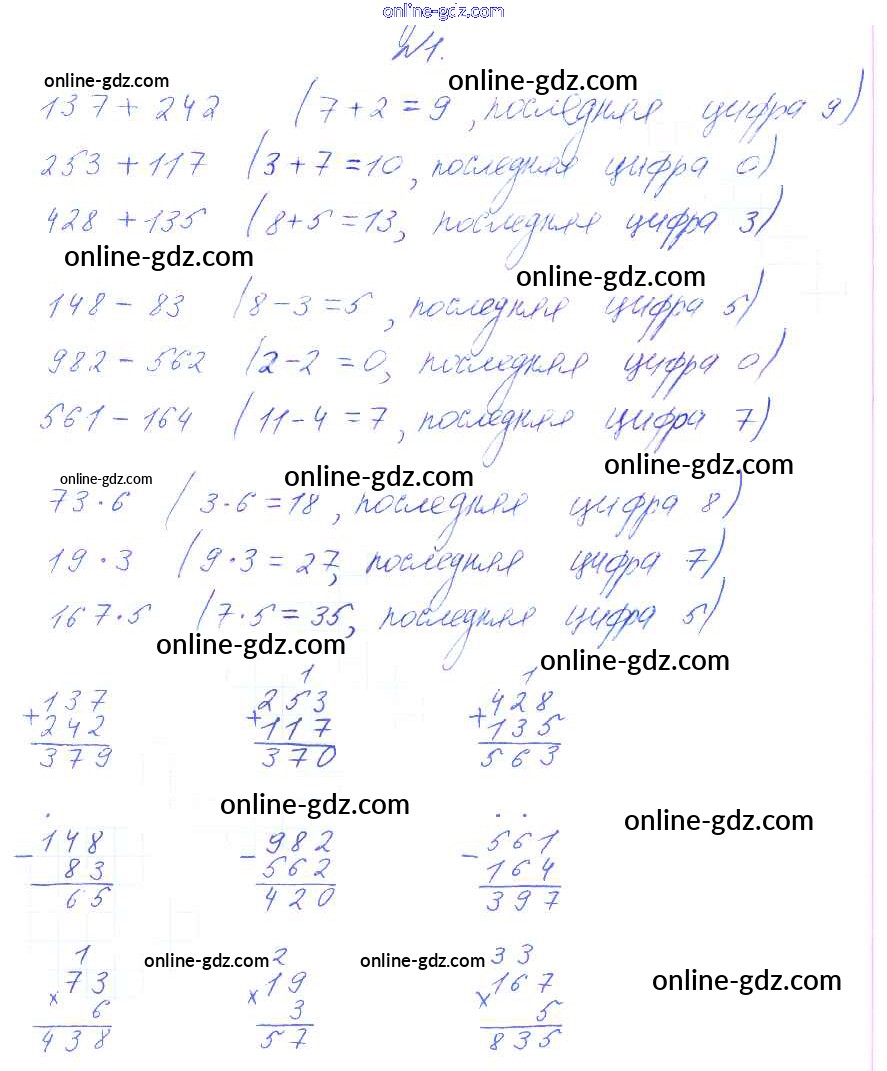 online-gdz.com
№1.
online-gdz.com online-gdz.com
137 + 242 (7 + 2 = 9, последняя цифра 9)
253 + 117 (3 + 7 = 10, последняя цифра 0)
428 + 135 (8 + 5 = 13, последняя цифра 3)
online-gdz.com online-gdz.com
148 - 83 (8 - 3 = 5, последняя цифра 5)
982 - 562 (2 - 2 = 0, последняя цифра 0)
561 - 164 (11 - 4 = 7, последняя цифра 7)
online-gdz.com online-gdz.com online-gdz.com
73 · 6 (3 · 6 = 18, последняя цифра 8)
19 · 3 (9 · 3 = 27, последняя цифра 7)
167 · 5 (7 · 5 = 35, последняя цифра 5)
online-gdz.com online-gdz.com
1 1
+ 137 + 253 + 428
242 117 135
379 370 563
online-gdz.com online-gdz.com
. . .
- 148 - 982 - 561
83 562 164
65 420 397
1 online-gdz.com 2 online-gdz.com 33
× 73 × 19 × 167 online-gdz.com
6 3 5
438 57 835